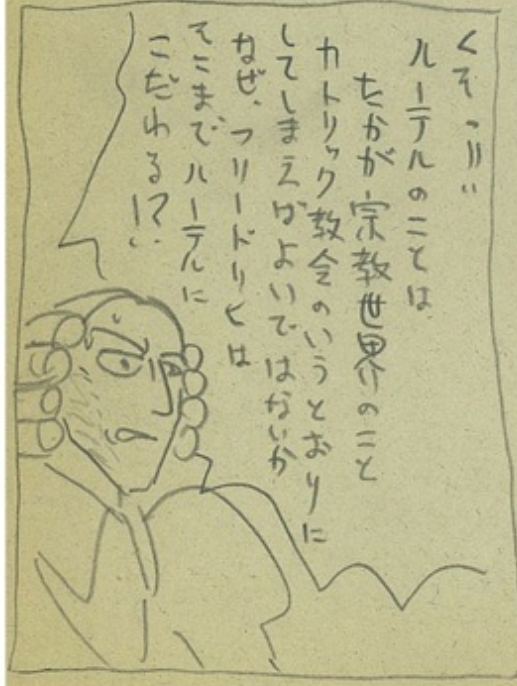 くそっ!!
ルーテルのことは
たかが宗教世界のこと
カトリック教会のいうとおりに
してしまえばよいではないか
なぜ、フリードリヒは
そこまでルーテルに
こだわる!?